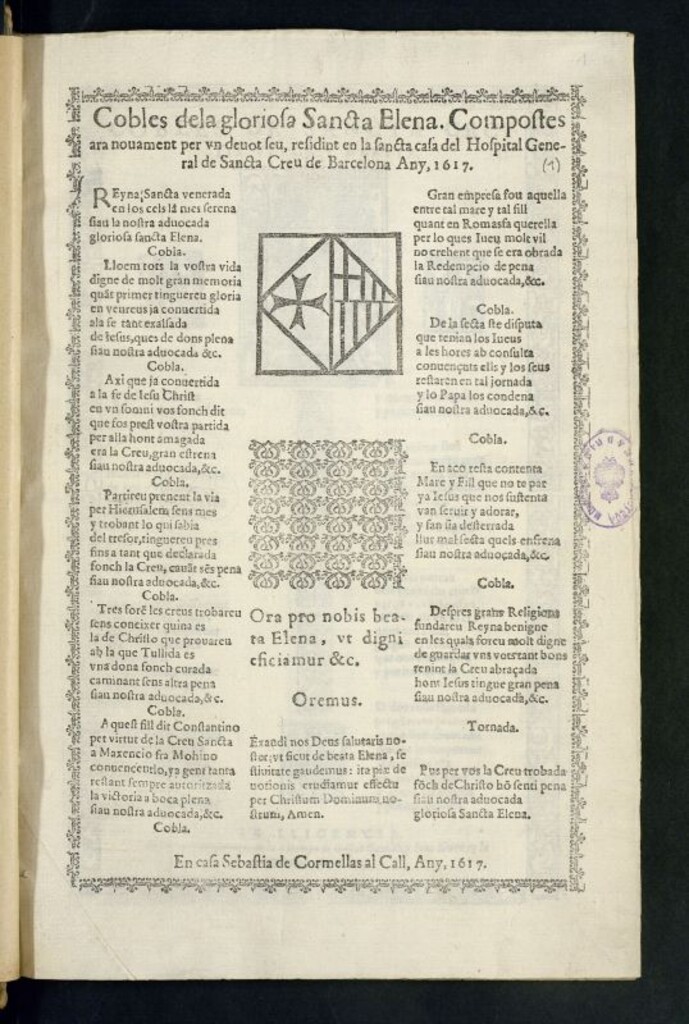 Cobles dela gloriosa Sancta Elena. Compostes
ara nouament per vn deuot seu, residint en la sancta casa del Hospital Gene-
ral de Sancta Creu de Barcelona Any, 1617.
(1)
REyna, Sancta venerada
en los cels la mes serena
siau la nostra aduocada
gloriosa sancta Elena.
Cobla.
Lloem tots la vostra vida
digne de molt gran memoria
quãt primer tinguereu gloria
en veureus ja conuertida
ala fe tant exalsada
de Iesus, ques de dons plena
siau nostra aduocada &c.
Cobla.
Axi que ja conuertida
a la fe de Iesu Christ
en vn somni vos fonch dit
que fos prest vostra partida
per alla hont amagada
era la Creu, gran estrena
siau nostra aduocada, &c.
Cobla.
Partireu prenent la via
per Hierusalem sens mes
y trobant lo qui sabia
del tresor, tinguereu pres
fins a tant que declarada
fonch la Creu, cauãt sẽs pena
siau nostra aduocada, &c.
Cobla.
Tres forẽ les creus trobareu
sens coneixer quina es
la de Christo que prouareu
ab la que Tullida es
vna dona fonch curada
caminant sens altra pena
siau nostra aduocada, &c.
Cobla.
Aquest fill dit Constantino
per virtut de la Creu Sancta
a Maxencio fra Mohino
conuencentlo, ya gent tanta
restant sempre autoritzada
la victoria a boca plena
siau nostra aduocada, &c.
Cobla.
Ora pro nobis bea-
ta Elena, vt digni
eficiamur &c.
Oremus.
Exaudi nos Deus salutaris no-
ster, vt sicut de beata Elena, fe
stiuitate gaudemus: ita piæ de
uotionis erudiamur effectu
per Christum Dominum no-
strum, Amen.
Gran empresa fou aquella
entre tal mare y tal fill
quant en Romassa querella
per lo ques Iueu molt vil
no crehent que se era obrada
la Redempcio de pena
siau nostra aduocada, &c.
Cobla.
De la secta ste disputa
que tenian los Iueus
a les hores ab consulta
conuençuts ells y los seus
restaren en tal jornada
y lo Papa los condena
siau nostra aduocada, &c.
Cobla.
En aço resta contenta
Mare y Fill que no te par
ya Iesus que nos sustenta
van seruir y adorar,
y fan sia desterrada
llur mal secta quels enfrena
siau nostra aduocada, &c.
Cobla.
Despres grans Religions
fundareu Reyna benigne
en les quals foreu molt digne
de guardar vns vots tant bons
tenint la Creu abraçada
hont Iesus tingue gran pena
siau nostra aduocada, &c.
Tornada.
Pus per vos la Creu trobada
fõch de Christo bõ senti pena
siau nostra aduocada
gloriosa Sancta Elena.
En casa Sebastia de Cormellas al Call, Any, 1617.